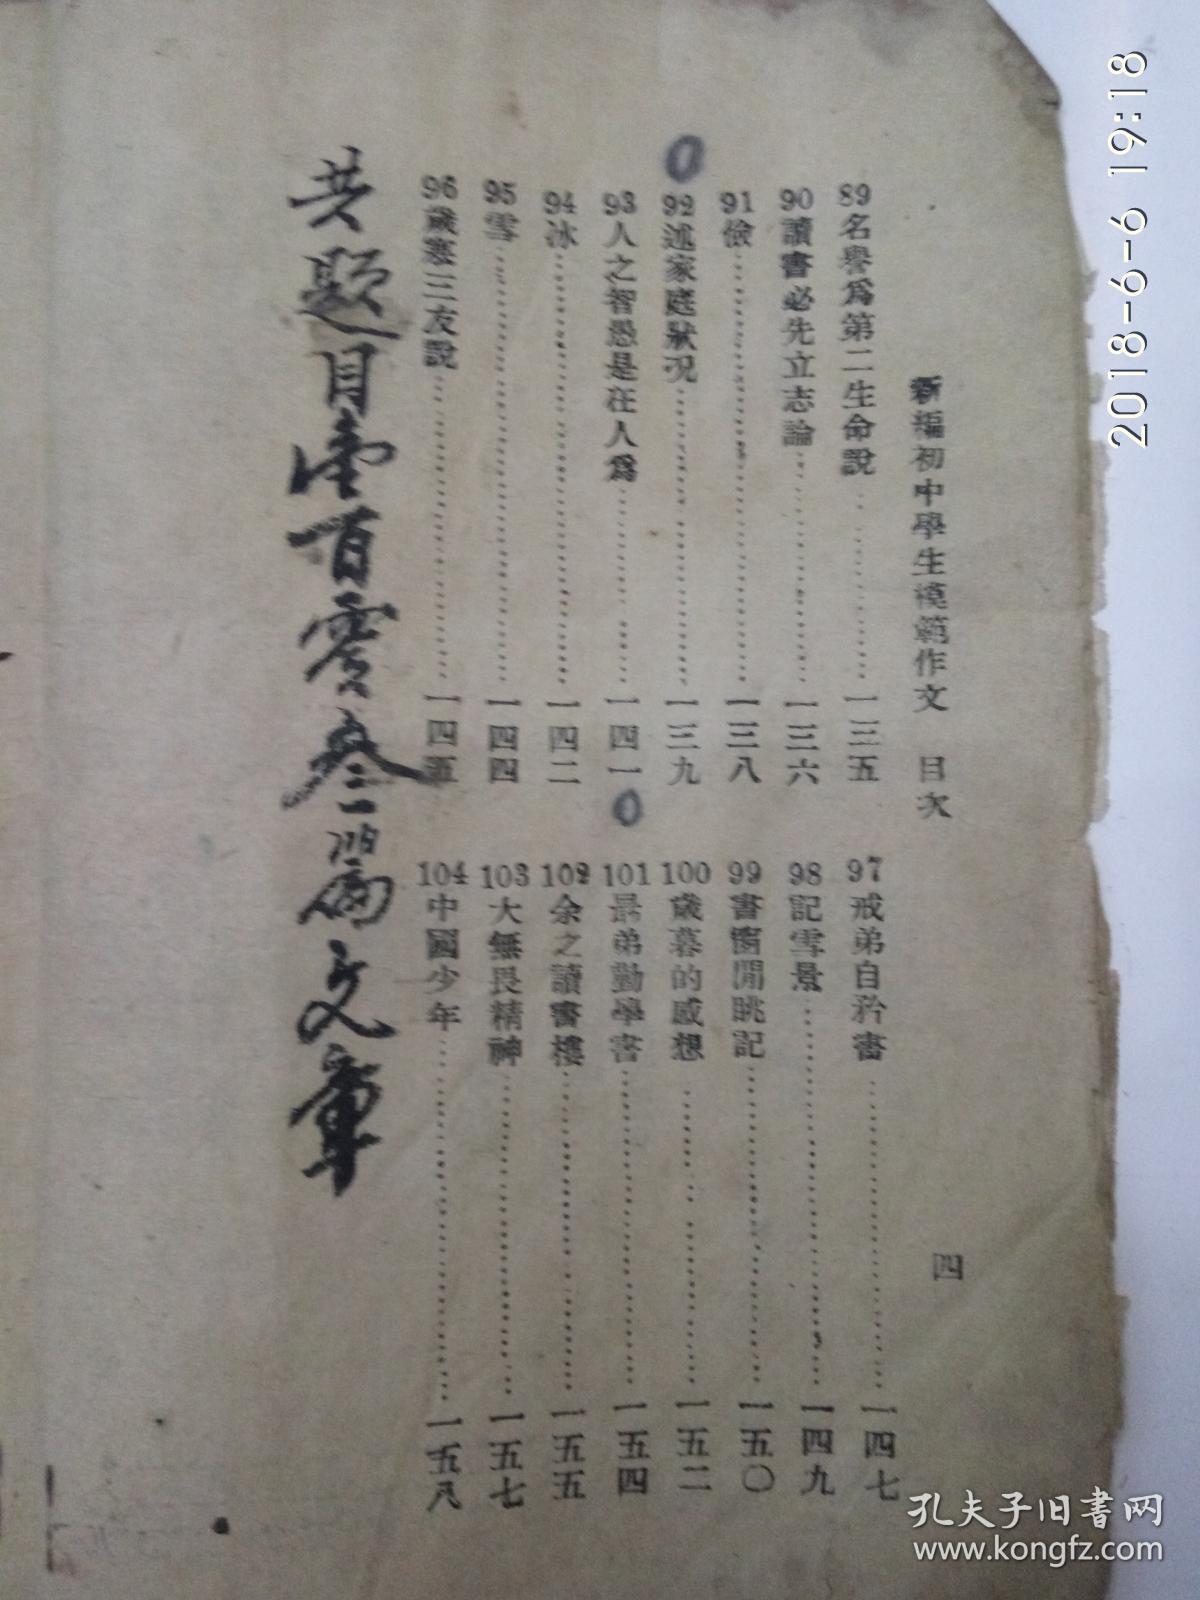 新編初中學生模範作文　目次
四
89名譽爲第二生命說……………一三五
90讀書必先立志論……………一三六
91儉……………一三八
92述家庭狀况……………一三九
93人之智愚是在人爲……………一四一
94冰……………一四二
95雪……………一四四
96歲寒三友說……………一四五
97戒弟自矜書……………一四七
98記雪景……………一四九
99書窗閒眺記……………一五〇
100歲暮的感想……………一五二
101勗弟勤學書……………一五四
102余之讀書樓……………一五五
103大無畏精神……………一五七
104中國少年……………一五八
共题目壹百零叁篇文章
2018-6-6 19:18
孔夫子旧书网
www.kongfz.com